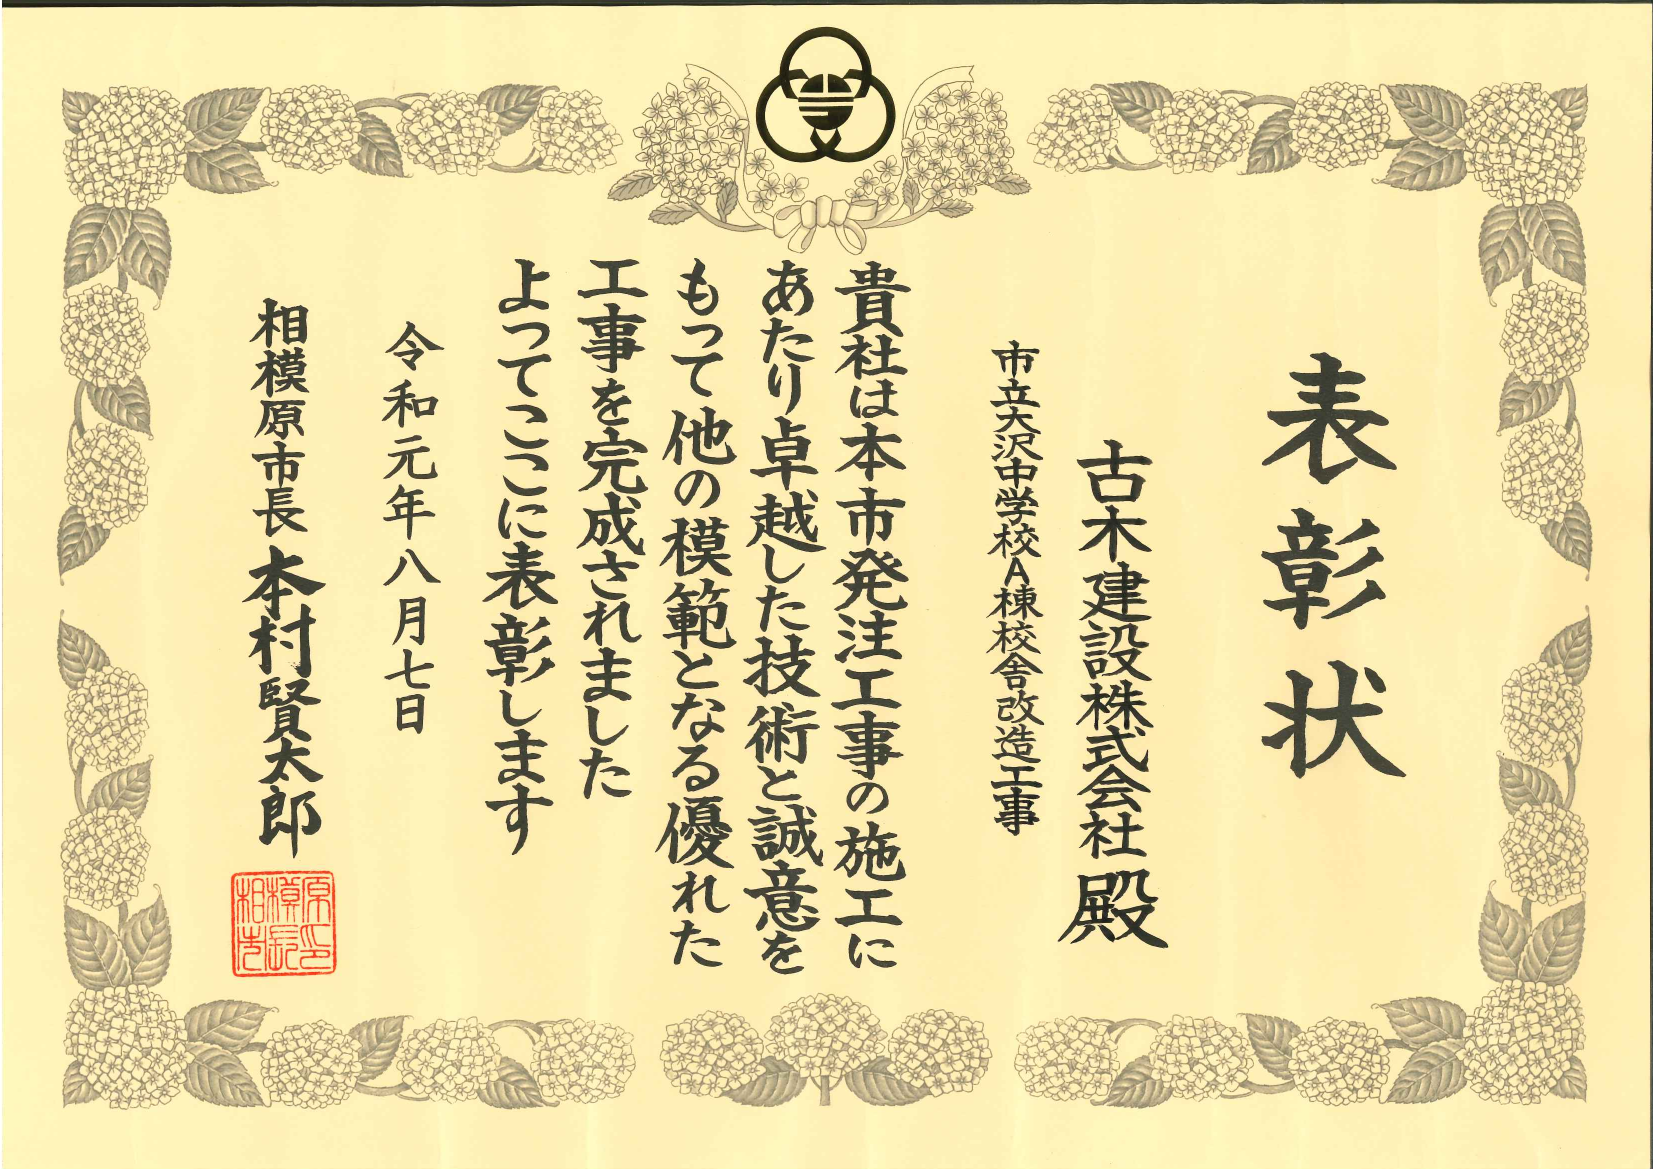 表彰状
古木建設株式会社殿
市立大沢中学校A棟校舎改造工事
貴社は本市発注工事の施工に
あたり卓越した技術と誠意を
もって他の模範となる優れた
工事を完成されました
よってここに表彰します
令和元年八月七日
相模原市長 本村賢太郎
相模原市長印